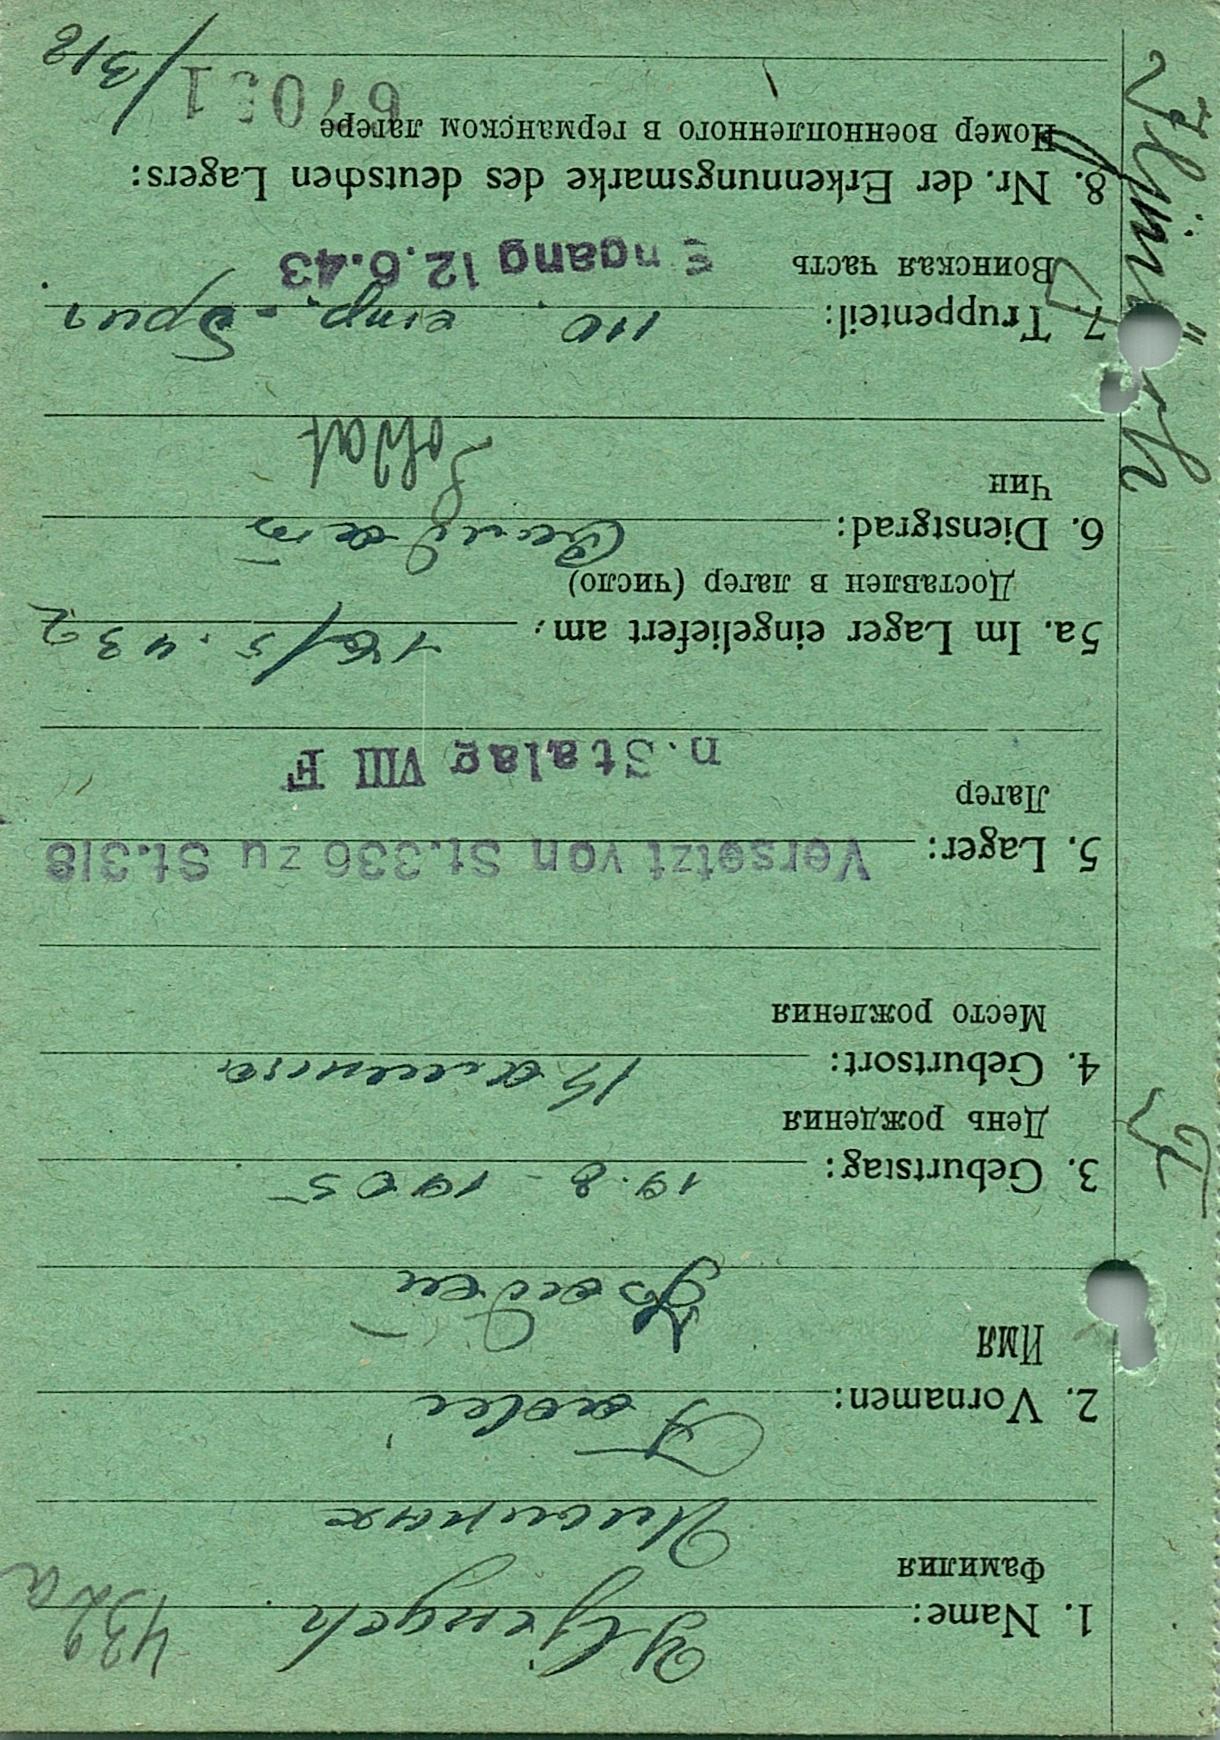 432a
1. Name: Iljinych.
Фамилия
Ильиных
2. Vornamen: Fadei
Имя
Фадей
3. Geburtstag: 19.8-1905
День рождения
4. Geburtsort:
Место рождения
5. Lager: Versetzt von St.336 zu St.318
Лагер
n. Stalag VIII F
5a. Im Lager eingeliefert am:
Доставлен в лагер (число)
6. Dienstgrad:
Чин
Soldat
7. Truppenteil: 110
Воинская часть
Eingang 12.6.43
8. Nr. der Erkennungsmarke des deutschen Lagers:
Номер военнопленного в германском лагере
/318